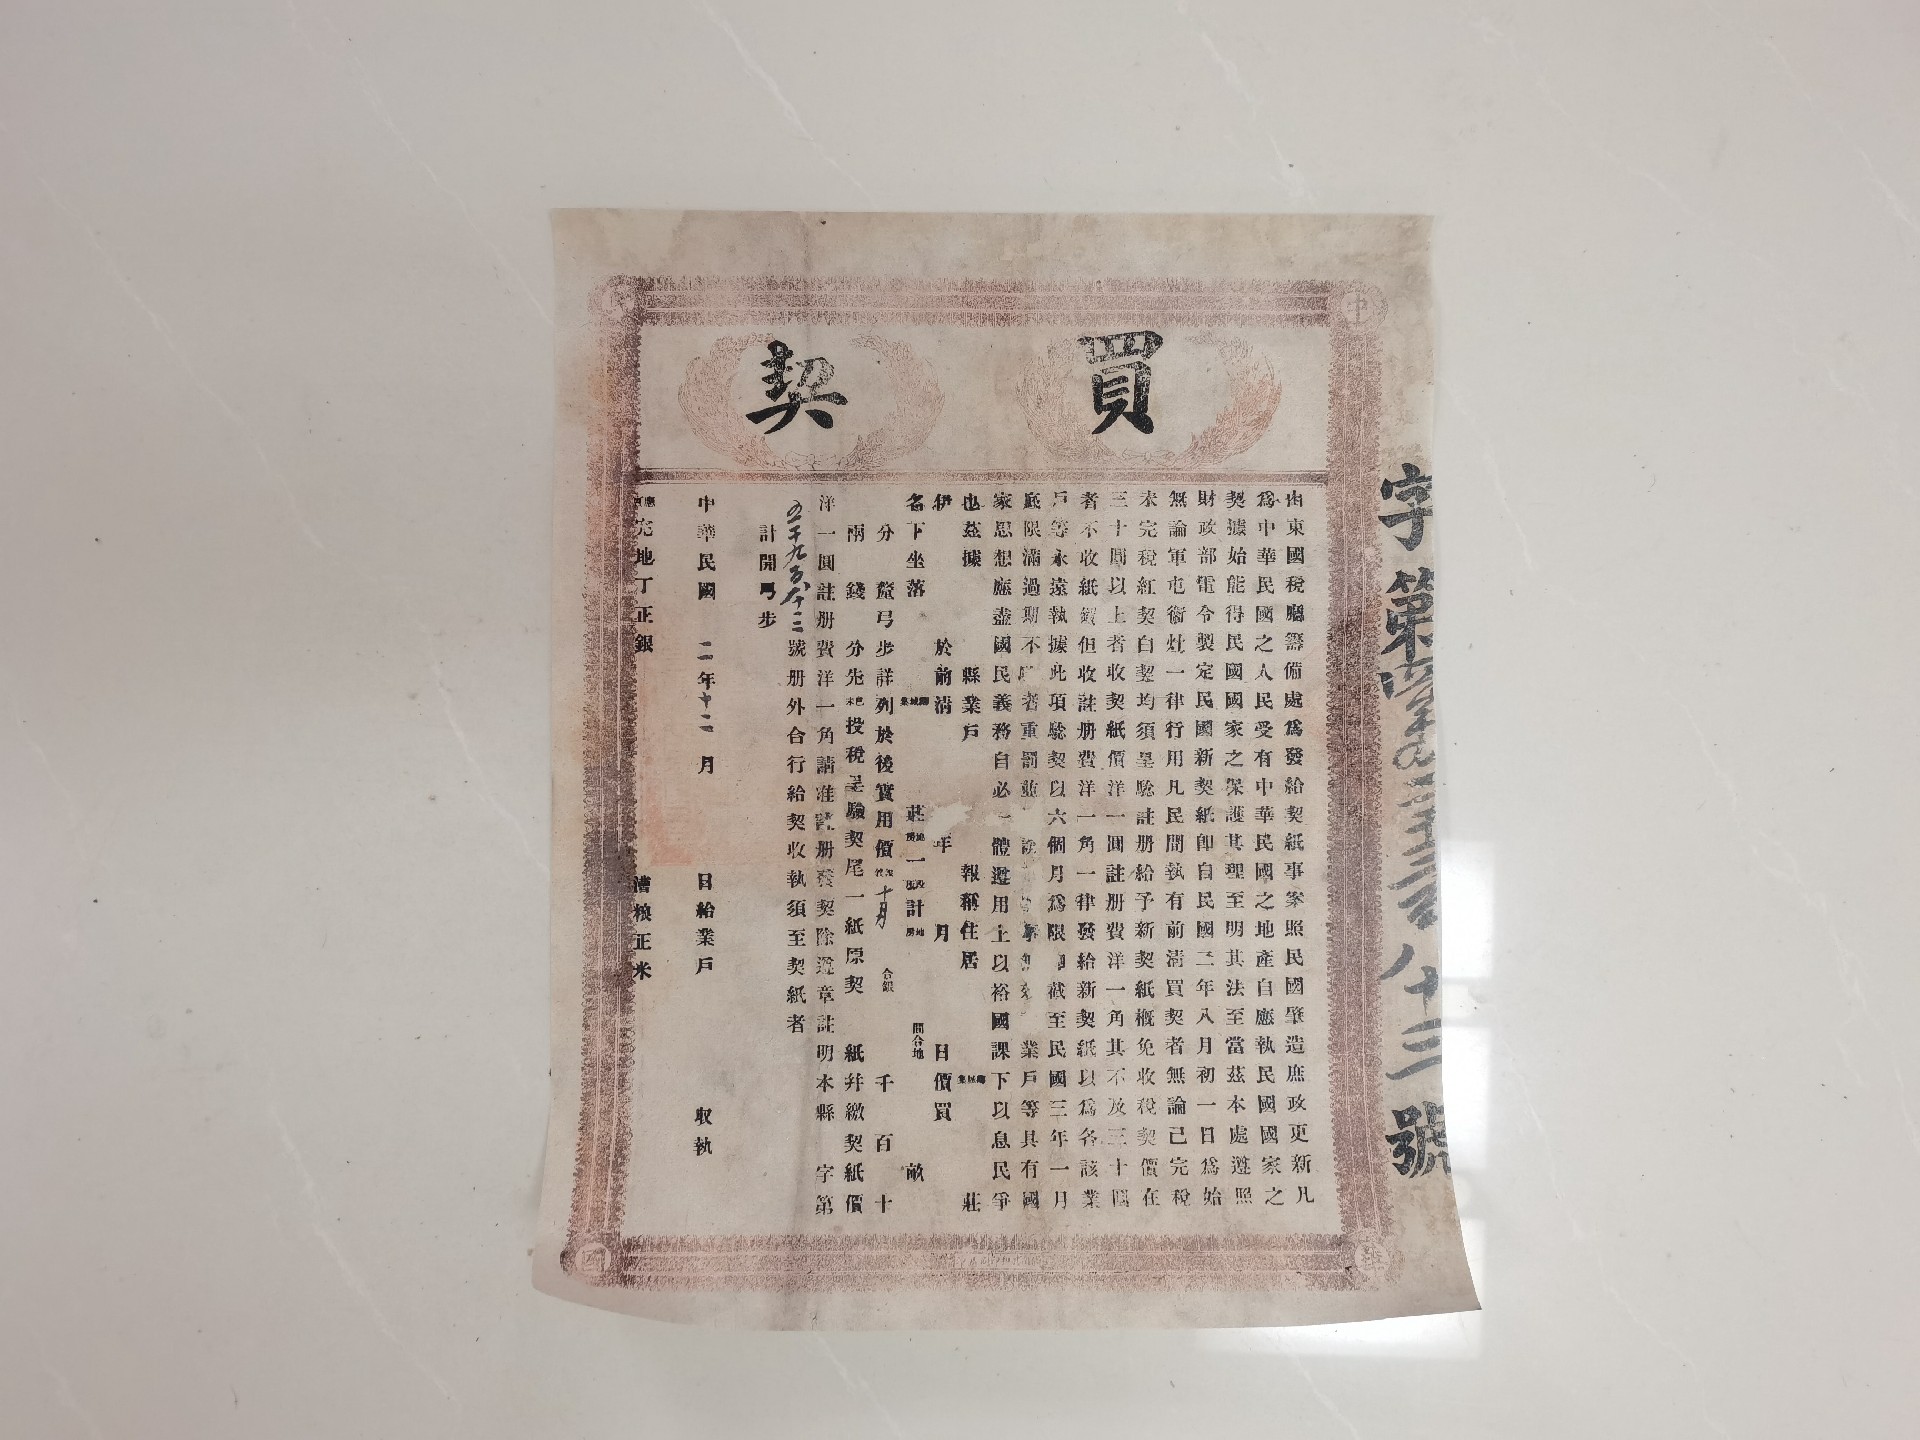 買契
中華
國
山東國稅廳籌備處爲發給契紙事案照民國肇造庶政更新凡
爲中華民國之人民受有中華民國之地產自應執民國國家之
契據始能得民國國家之保護其理至明其法至當茲本處遵照
財政部電令製定民國新契紙卽自民國二年八月初一日爲始
無論軍屯衞灶一律行用凡民間執有前清買契者無論已完稅
未完稅紅契白契均須呈驗註册給予新契紙槪免收稅契價在
三十圓以上者收契紙價洋一圓註册費洋一角其不及三十圓
者不收紙價但收註册費洋一角一律發給新契紙以爲各該業
戶等永遠執據此項驗契以六個月爲限截至民國三年一月
底限滿過期不者重罰並業戶等具有國
家思想應盡國民義務自必一體遵用上以裕國課下以息民爭
也茲據 縣業戶 報稱住居 莊
伊 於前清 年 月 日價買
名下坐落 莊 一 計 間合地 畝
分 釐弓步詳列於後實用價 十月 合銀 千 百 十
兩 錢 分先投稅呈驗契尾一紙原契 紙幷繳契紙價
洋一圓註册費洋一角請准註册發契除遵章註明本縣 字第
號册外合行給契收執須至契紙者
計開弓步
中華民國 二年十二月 日給業戶 收執
完地丁正銀 漕粮正米
字第 八十三號